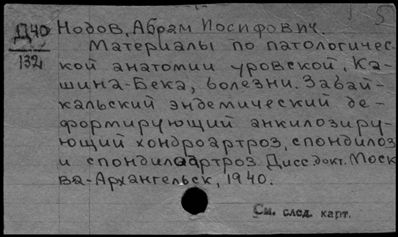 Д40
132
Нодов, Абрам Иосифович.
Материалы по патологичес
кой анатомии уровской, Ка-
шина-Бека, болезни. Забай-
кальский эндемический де-
формирующий анкилозиру-
ющий хондроартроз, спондилоз
и спондилоартроз Дисс. докт. Моск
ва-Архангельск, 1940.
См. след. карт.